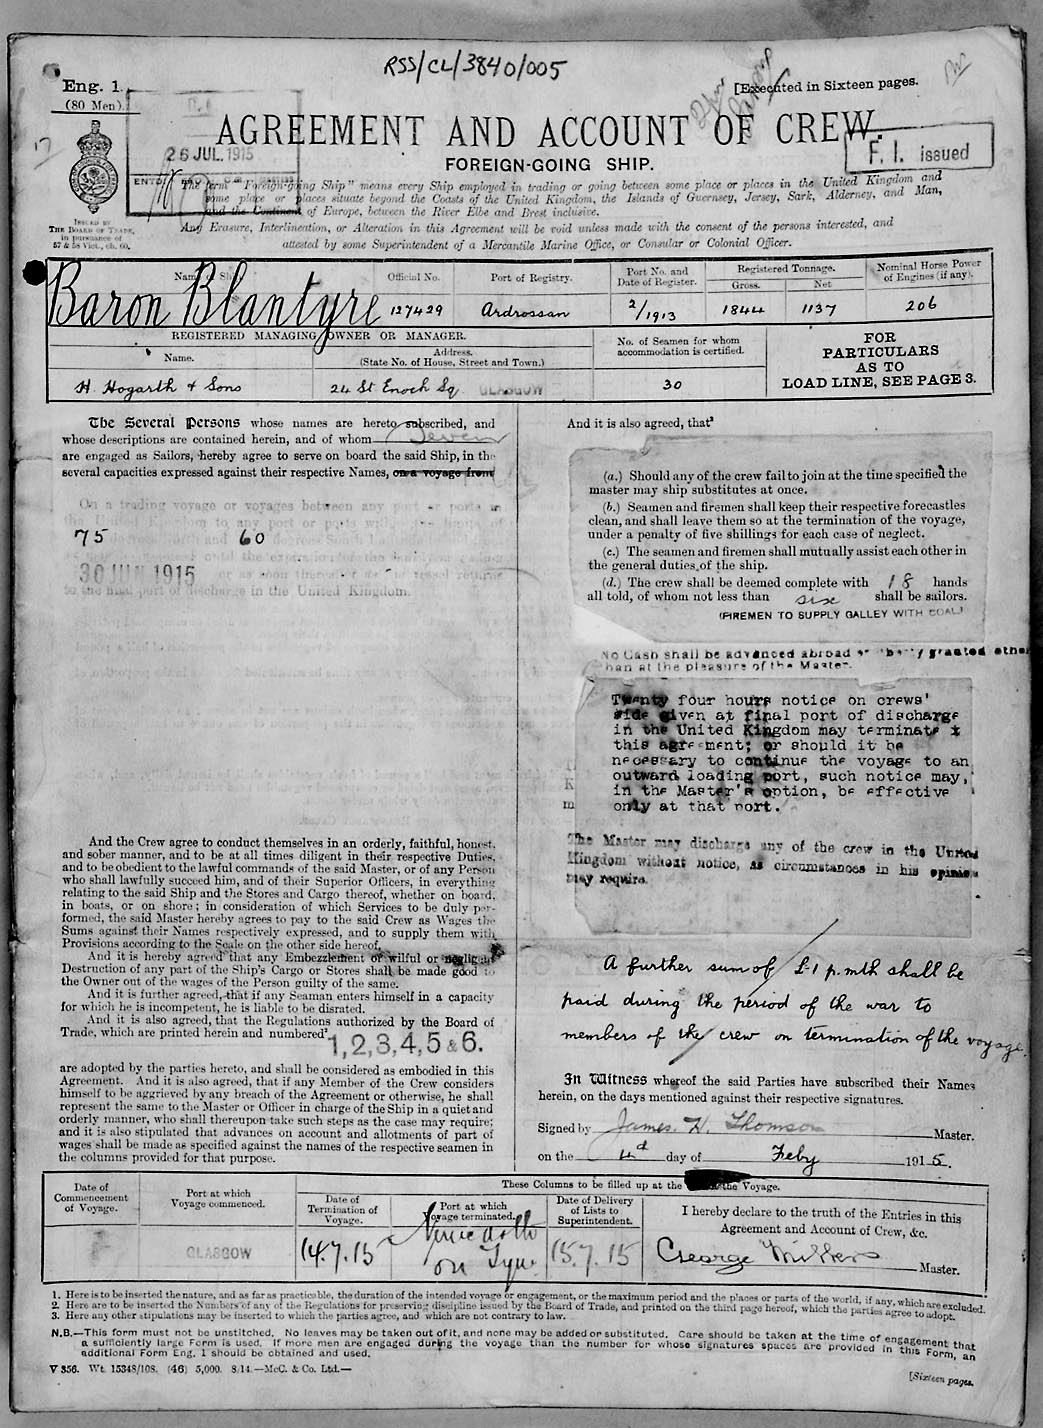 RSS/CL/3840/005
Eng. 1.
(80 Men).
[Executed in Sixteen pages.
AGREEMENT AND ACCOUNT OF CREW.
FOREIGN-GOING SHIP.
26 JUL. 1915
F. I. issued
The term "Foreign-going Ship" means every Ship employed in trading or going between some place or places in the United Kingdom and
some place or places situate beyond the Coasts of the United Kingdom, the Islands of Guernsey, Jersey, Sark, Alderney, and Man,
and the Continent of Europe, between the River Elbe and Brest inclusive.
Any Erasure, Interlineation, or Alteration in this Agreement will be void unless made with the consent of the persons interested, and
attested by some Superintendent of a Mercantile Marine Office, or Consular or Colonial Officer.
ISSUED BY
THE BOARD OF TRADE,
in pursuance of
57 & 58 Vict., ch. 60.
Name of Ship. Official No. Port of Registry. Port No. and Date of Register. Registered Tonnage. Gross. Net Nominal Horse Power of Engines (if any).
Baron Blantyre 127429 Ardrossan 2/1913 1844 1137 206
REGISTERED MANAGING OWNER OR MANAGER.
Name. Address. (State No. of House, Street and Town.) No. of Seamen for whom accommodation is certified.
H. Hogarth & Sons 24 St Enoch Sq. GLASGOW 30
FOR
PARTICULARS
AS TO
LOAD LINE, SEE PAGE 3.
The Several Persons whose names are hereto subscribed, and
whose descriptions are contained herein, and of whom Seven
are engaged as Sailors, hereby agree to serve on board the said Ship, in the
several capacities expressed against their respective Names, on a voyage from
On a trading voyage or voyages between any port or ports in
the United Kingdom to any port or ports within the limits of
75 60 degrees South
30 JUN 1915 or as soon thereafter as the vessel returns
to the final port of discharge in the United Kingdom.
And the Crew agree to conduct themselves in an orderly, faithful, honest,
and sober manner, and to be at all times diligent in their respective Duties,
and to be obedient to the lawful commands of the said Master, or of any Person
who shall lawfully succeed him, and of their Superior Officers, in everything
relating to the said Ship and the Stores and Cargo thereof, whether on board,
in boats, or on shore; in consideration of which Services to be duly per-
formed, the said Master hereby agrees to pay to the said Crew as Wages the
Sums against their Names respectively expressed, and to supply them with
Provisions according to the Scale on the other side hereof.
And it is hereby agreed that any Embezzlement or wilful or negligent
Destruction of any part of the Ship's Cargo or Stores shall be made good to
the Owner out of the wages of the Person guilty of the same.
And it is further agreed, that if any Seaman enters himself in a capacity
for which he is incompetent, he is liable to be disrated.
And it is also agreed, that the Regulations authorized by the Board of
Trade, which are printed herein and numbered²
1,2,3,4,5 & 6.
are adopted by the parties hereto, and shall be considered as embodied in this
Agreement. And it is also agreed, that if any Member of the Crew considers
himself to be aggrieved by any breach of the Agreement or otherwise, he shall
represent the same to the Master or Officer in charge of the Ship in a quiet and
orderly manner, who shall thereupon take such steps as the case may require;
and it is also stipulated that advances on account and allotments of part of
wages shall be made as specified against the names of the respective seamen in
the columns provided for that purpose.
And it is also agreed, that³
(a.) Should any of the crew fail to join at the time specified the
master may ship substitutes at once.
(b.) Seamen and firemen shall keep their respective forecastles
clean, and shall leave them so at the termination of the voyage,
under a penalty of five shillings for each case of neglect.
(c.) The seamen and firemen shall mutually assist each other in
the general duties of the ship.
(d.) The crew shall be deemed complete with 18 hands
all told, of whom not less than six shall be sailors.
(FIREMEN TO SUPPLY GALLEY WITH COAL)
No Cash shall be advanced abroad or liberty granted other
than at the pleasure of the Master.
Twenty four hours notice on crews'
side given at final port of discharge
in the United Kingdom may terminate
this agreement; or should it be
necessary to continue the voyage to an
outward loading port, such notice may,
in the Master's option, be effective
only at that port.
The Master may discharge any of the crew in the United
Kingdom without notice, as circumstances in his opinion
may require.
A further sum of £1 p. mth shall be
paid during the period of the war to
members of the crew on termination of the voyage.
In Witness whereof the said Parties have subscribed their Names
herein, on the days mentioned against their respective signatures.
Signed by James H. Thomson Master.
on the 4th day of Feby 1915.
These Columns to be filled up at the the Voyage.
Date of Commencement of Voyage. Port at which Voyage commenced. Date of Termination of Voyage. Port at which Voyage terminated. Date of Delivery of Lists to Superintendent. I hereby declare to the truth of the Entries in this Agreement and Account of Crew, &c.
GLASGOW 14.7.15 Newcastle on Tyne 15.7.15 George Master.
1. Here is to be inserted the nature, and as far as practicable, the duration of the intended voyage or engagement, or the maximum period and the places or parts of the world, if any, which are excluded.
2. Here are to be inserted the Numbers of any of the Regulations for preserving discipline issued by the Board of Trade, and printed on the third page hereof, which the parties agree to adopt.
3. Here any other stipulations may be inserted to which the parties agree, and which are not contrary to law.
N.B.—This form must not be unstitched. No leaves may be taken out of it, and none may be added or substituted. Care should be taken at the time of engagement that
a sufficiently large Form is used. If more men are engaged during the voyage than the number for whose signatures spaces are provided in this Form, an
additional Form Eng. 1 should be obtained and used.
V 356. Wt. 15348/108. (46) 5,000. 8/14.—McC. & Co. Ltd.—
[Sixteen pages.